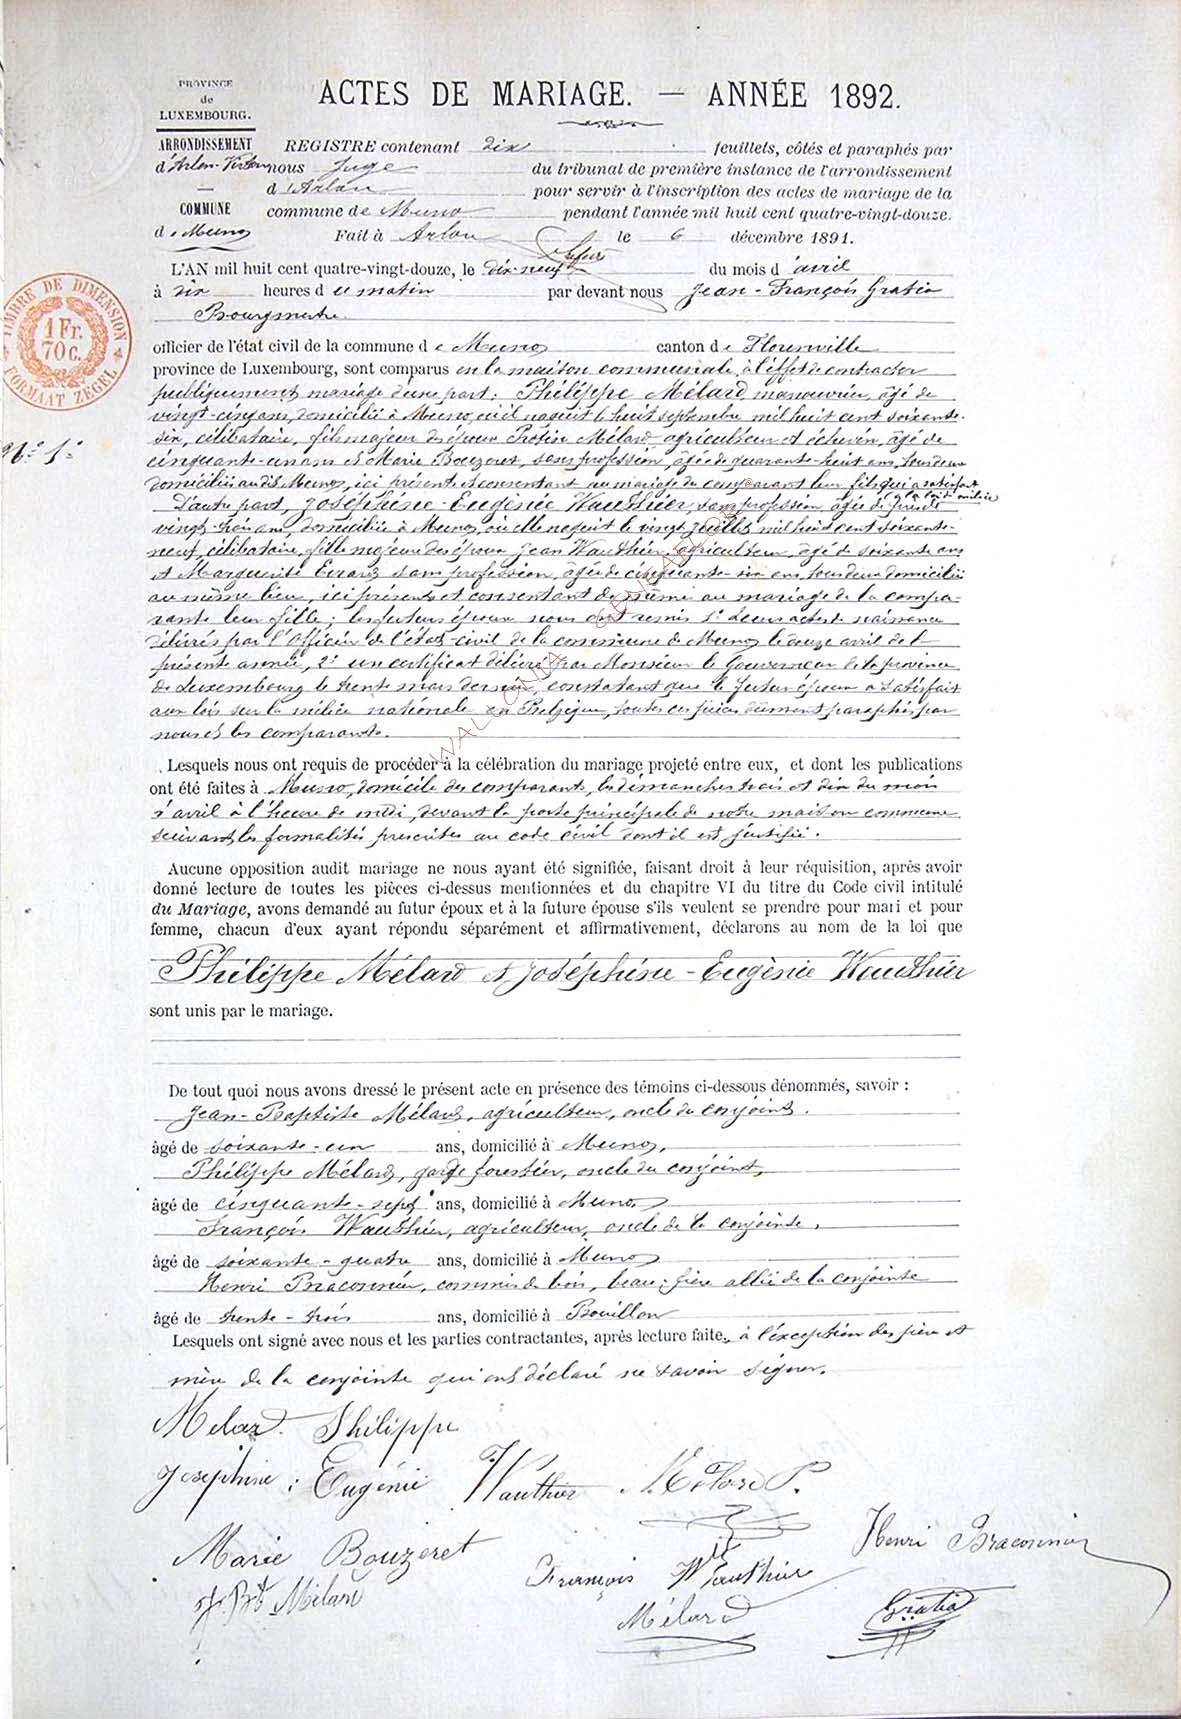 PROVINCE
de
LUXEMBOURG.
ACTES DE MARIAGE. — ANNÉE 1892.
ARRONDISSEMENT
d'Arlon-Virton
COMMUNE
de Muno
REGISTRE contenant dix feuillets, côtés et paraphés par
nous Juge du tribunal de première instance de l'arrondissement
d'Arlon pour servir à l'inscription des actes de mariage de la
commune de Muno pendant l'année mil huit cent quatre-vingt-douze.
Fait à Arlon le 6 décembre 1891.
TIMBRE DE DIMENSION
1 Fr.
70 c.
FORMAAT ZEGEL
L'AN mil huit cent quatre-vingt-douze, le dix-neuf du mois d'avril
à dix heures du matin par devant nous Jean-François Gratia
Bourgmestre
officier de l'état civil de la commune de Muno canton de Florenville
province de Luxembourg, sont comparus en la maison communale, à l'effet de contracter
publiquement mariage d'une part: Philippe Mélard manouvrier, âgé de
vingt-cinq ans, domicilié à Muno, où il naquit le huit septembre mil huit cent soixante-
six, célibataire, fils majeur des époux Mélard, agriculteur et échevin, âgé de
cinquante-un ans et Marie Bouzeret, sans profession, âgée de quarante-huit ans, tous deux
domiciliés audit Muno, ici présents et consentant au mariage du comparant leur fils qui a satisfait
à la loi de milice
N° 5.
D'autre part, Joséphine-Eugénie Wauthier, sans profession, âgée de
vingt-trois ans, domiciliée à Muno, où elle naquit le vingt juillet mil huit cent soixante-
neuf, célibataire, fille majeure des époux Jean Wauthier, agriculteur, âgé de soixante ans
et Marguerite Evrard sans profession, âgée de cinquante-six ans, tous deux domiciliés
au même lieu, ici présents et consentant de même au mariage de la compa-
rante leur fille; les futurs époux nous ont remis 1° leurs actes de naissance
délivrés par l'Officier de l'état-civil de la commune de Muno le douze avril de la
présente année, 2° un certificat délivré par Monsieur le Gouverneur de la province
de Luxembourg le trente mars dernier, constatant que le futur époux a satisfait
aux lois sur la milice nationale en Belgique, toutes ces pièces dûment paraphées par
nous et les comparants.
Lesquels nous ont requis de procéder à la célébration du mariage projeté entre eux, et dont les publications
ont été faites à Muno, domicile des comparants, les dimanches trois et dix du mois
d'avril à l'heure de midi, devant la porte principale de notre maison commune
suivant les formalités prescrites au code civil dont il est justifié.
Aucune opposition audit mariage ne nous ayant été signifiée, faisant droit à leur réquisition, après avoir
donné lecture de toutes les pièces ci-dessus mentionnées et du chapitre VI du titre du Code civil intitulé
du Mariage, avons demandé au futur époux et à la future épouse s'ils veulent se prendre pour mari et pour
femme, chacun d'eux ayant répondu séparément et affirmativement, déclarons au nom de la loi que
Philippe Mélard et Joséphine-Eugénie Wauthier
sont unis par le mariage.
De tout quoi nous avons dressé le présent acte en présence des témoins ci-dessous dénommés, savoir :
Jean-Baptiste Mélard, agriculteur, oncle du conjoint.
âgé de soixante-un ans, domicilié à Muno,
Philippe Mélard, garde forestier, oncle du conjoint,
âgé de cinquante-sept ans, domicilié à Muno,
François Wauthier, agriculteur, oncle de la conjointe,
âgé de soixante-quatre ans, domicilié à Muno
Henri Braconnier, commis de bois, beau-frère allié de la conjointe
âgé de trente-trois ans, domicilié à Bouillon
Lesquels ont signé avec nous et les parties contractantes, après lecture faite, à l'exception des père et
mère de la conjointe qui ont déclaré ne savoir signer.
Melard Philippe
Joséphine Eugénie Wauthier Mélard P.
Marie Bouzeret François Wauthier Henri Braconnier
J. Bte Mélard Mélard Gratia
WALLONIA GENEALOGIE